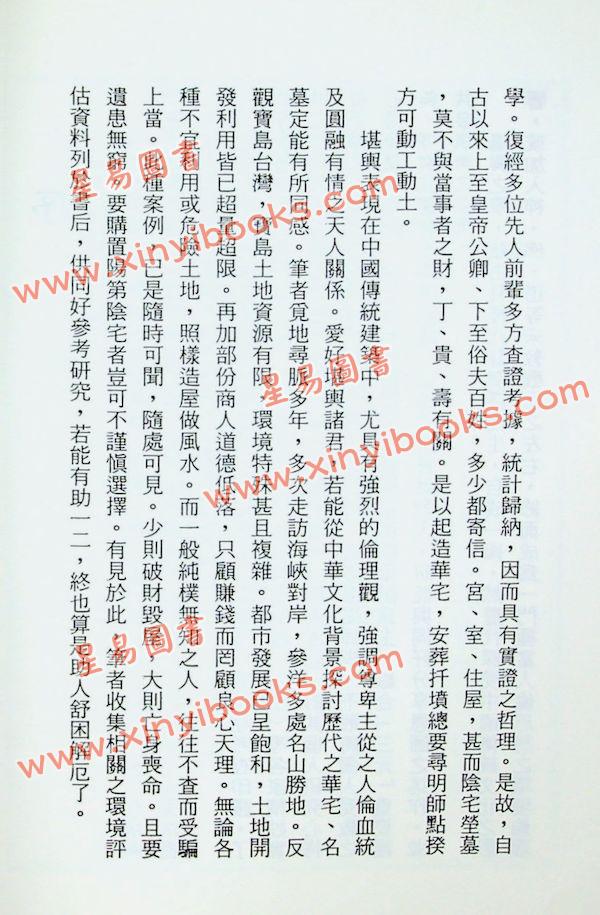 學。復經多位先人前輩多方查證考據，統計歸納，因而具有實證之哲理。是故，自
古以來上至皇帝公卿、下至俗夫百姓，多少都寄信。宮、室、住屋，甚而陰宅塋墓
，莫不與當事者之財，丁、貴、壽有關。是以起造華宅，安葬扦墳總要尋明師點揆
方可動工動土。
堪輿表現在中國傳統建築中，尤具有強烈的倫理觀，強調尊卑主從之人倫血統
及圓融有情之天人關係。愛好堪輿諸君，若能從中華文化背景探討歷代之華宅、名
墓定能有所同感。筆者覓地尋脈多年，多次走訪海峽對岸，參洋多處名山勝地。反
觀寶島台灣，寶島土地資源有限，環境特殊甚且複雜。都市發展已呈飽和，土地開
發利用皆已超量超限。再加部份商人道德低落，只顧賺錢而罔顧良心天理。無論各
種不宜利用或危險土地，照樣造屋做風水。而一般純樸無知之人，往往不査而受騙
上當。此種案例，已是隨時可聞，隨處可見。少則破財毀屋，大則亡身喪命。且要
遺患無窮。要購置陽第陰宅者豈可不謹慎選擇。有見於此，筆者收集相關之環境評
估資料列於書后，供同好參考研究，若能有助一二，終也算是助人舒困解厄了。
星易圖書
www.xinyibooks.com
星易圖書
www.xinyibooks.com
星易圖書
www.xinyibooks.com